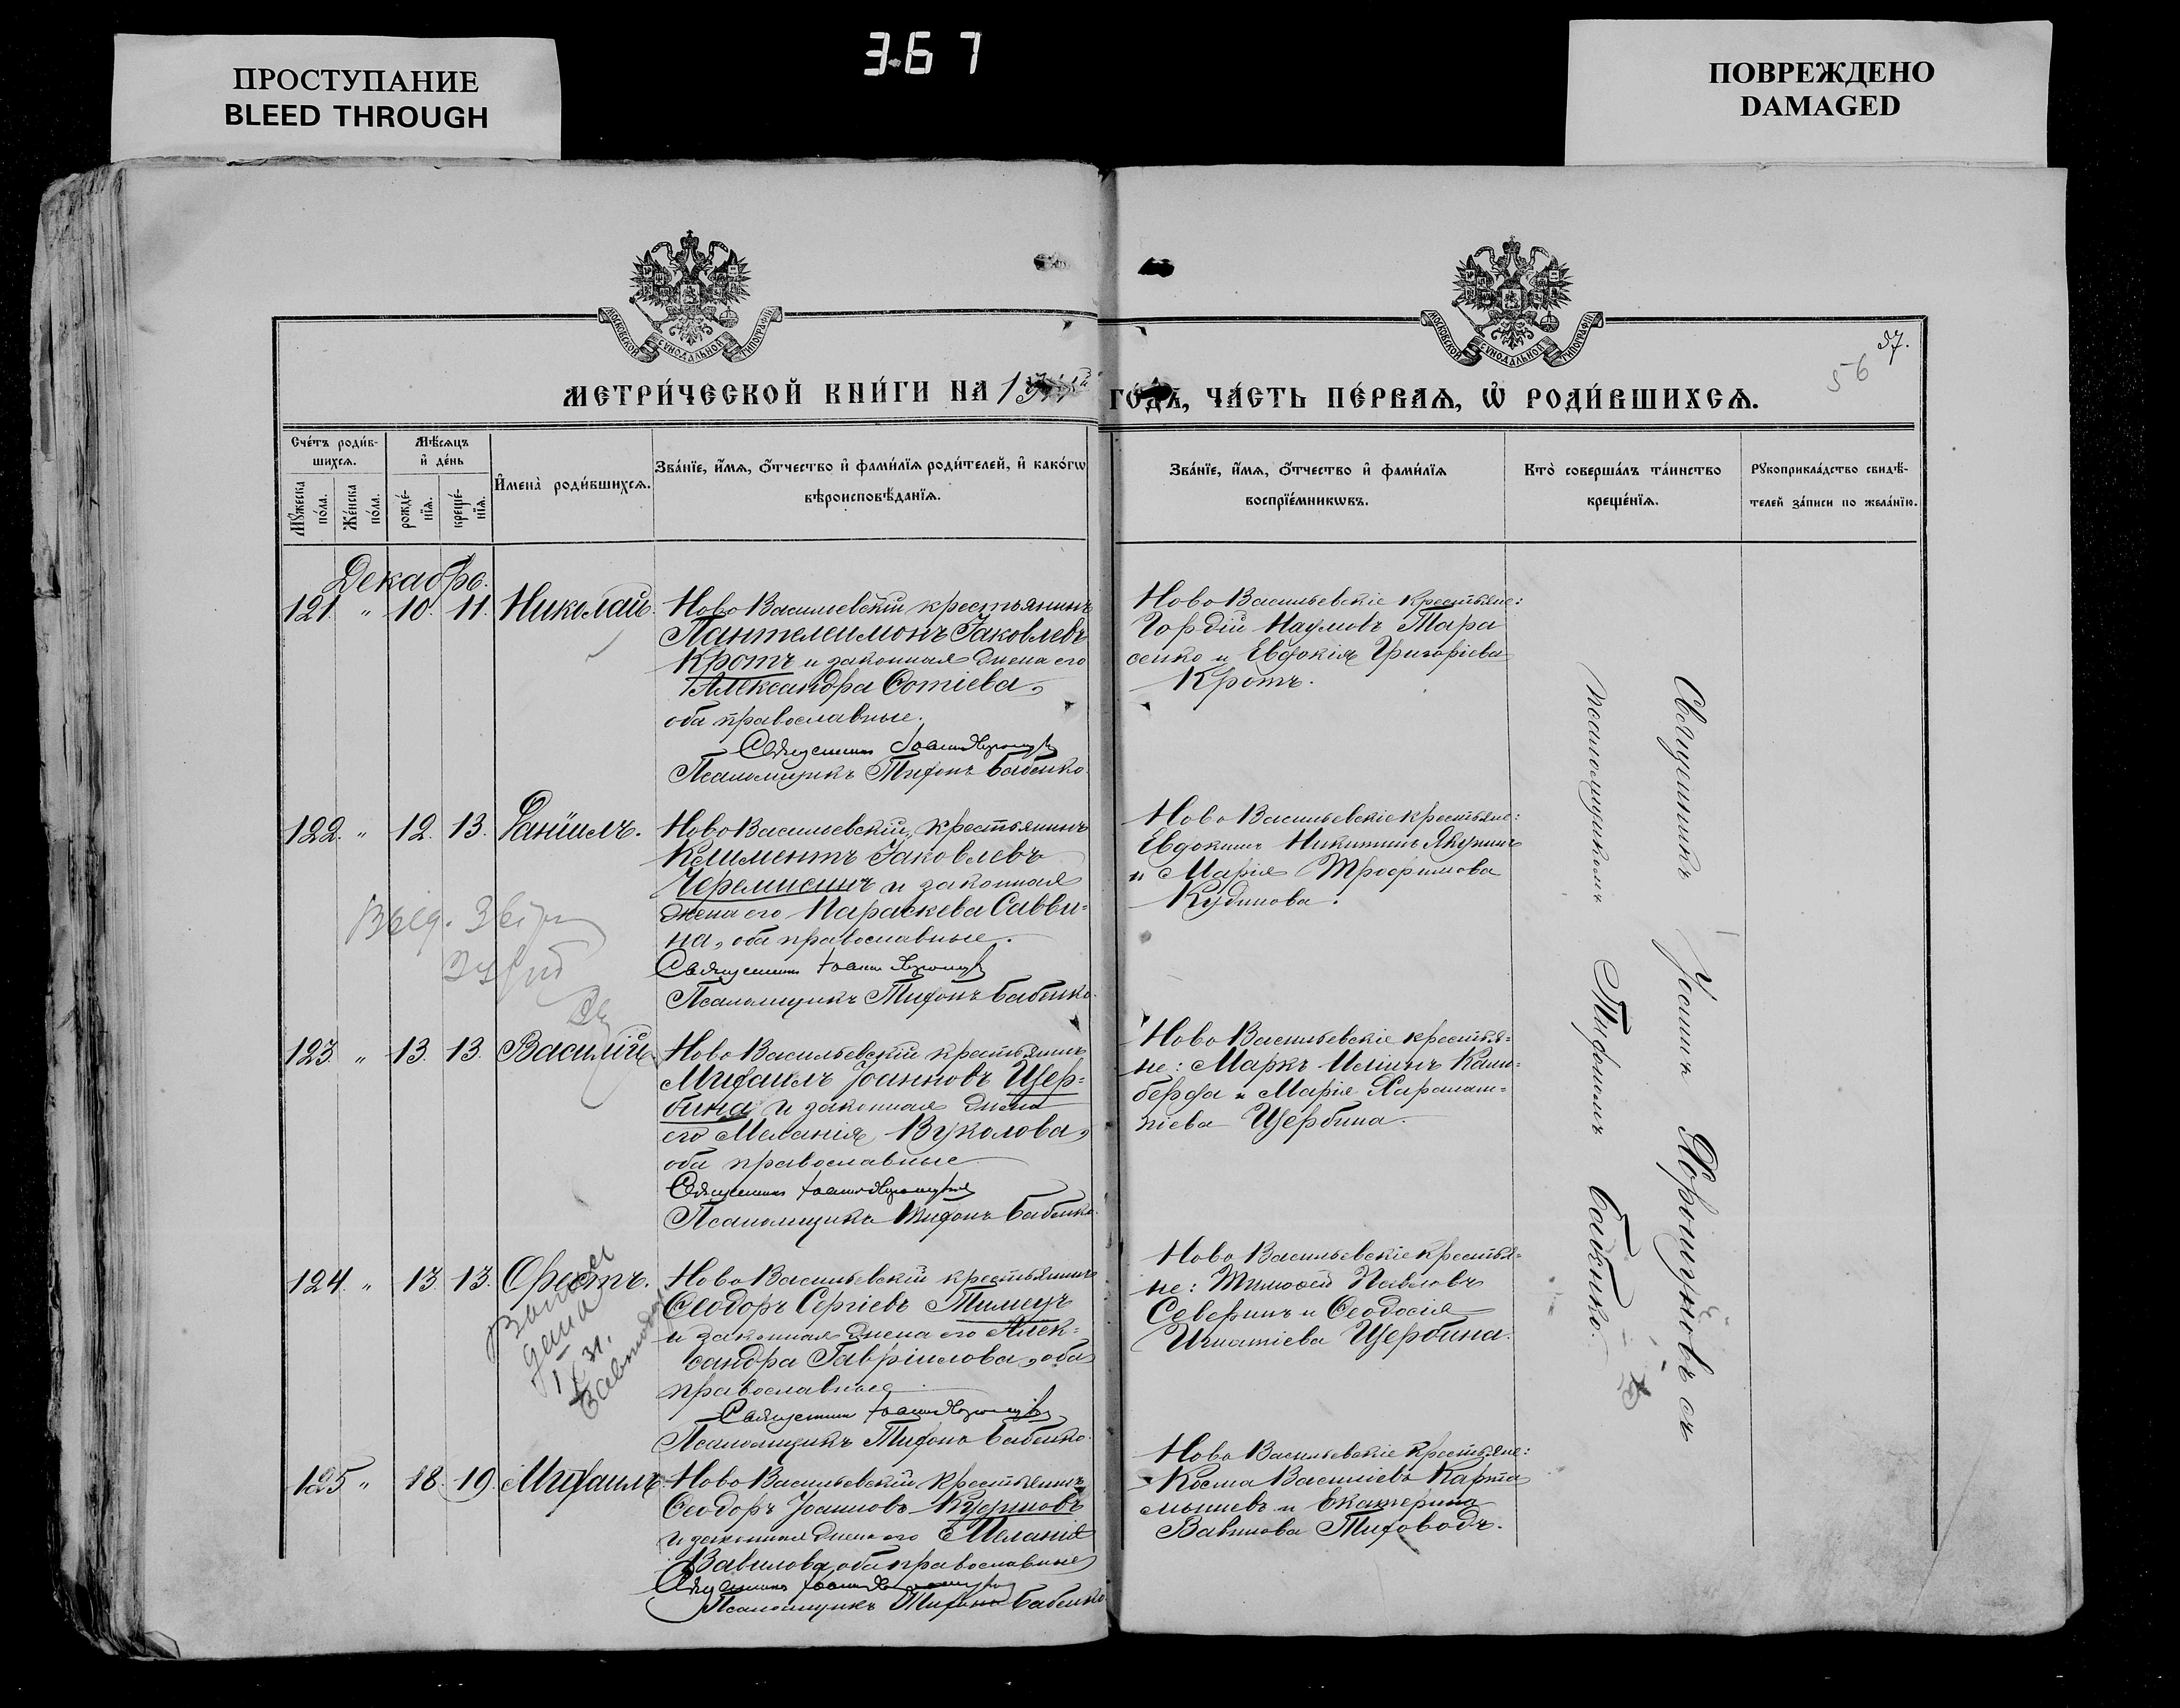 367
ПРОСТУПАНИЕ
BLEED THROUGH
ПОВРЕЖДЕНО
DAMAGED
МОСКОВСКОЙ СѴНОДАЛЬНОЙ ТИПОГРАФІИ
МОСКОВСКОЙ СѴНОДАЛЬНОЙ ТИПОГРАФІИ
37.
56
МЕТРИ́ЧЕСКОЙ КНИ́ГИ НА
ГО́ДЪ, ЧА́СТЬ ПЕ́РВАѦ, Ѡ҆ РОДИ́ВШИХСѦ.
Сче́тъ роди́в-
шихсѧ.
Мѣ́сѧцъ
и҆ де́нь
Мꙋ́жеска
по́ла.
Же́нска
по́ла.
рожде́-
нїѧ.
креще́-
нїѧ.
И҆мена̀ роди́вшихсѧ.
Зва́нїе, и҆́мѧ, ѻ҆́тчество и҆ фами́лїѧ роди́телей, и҆ како́гѡ
вѣроисповѣ́данїѧ.
Зва́нїе, и҆́мѧ, ѻ҆́тчество и҆ фами́лїѧ
воспрїе́мникѡвъ.
Кто̀ соверша́лъ та́инство
креще́нїѧ.
Рꙋкоприкла́дство свидѣ́-
телей за́писи по жела́нїю.
Декабрь.
121. " 10. 11. Николай.
Ново Васильевскій крестьянинъ
Пантелеимонъ Іаковлевъ
Кротъ и законная жена его
Александра Фотіева,
оба православные.
Священникъ Іоаннъ Хорошуновъ
Псаломщикъ Тихонъ Бабенко.
Ново Васильевскіе крестьяне:
Гордій Наумовъ Тара
сенко и Евдокія Григоріева
Кротъ.
122. " 12. 13. Даніилъ.
Ново Васильевскій крестьянинъ
Климентъ Іаковлевъ
Черемисинъ и законная
жена его Параскева Савви-
на, оба православные.
Священникъ Іоаннъ Хорошуновъ
Псаломщикъ Тихонъ Бабенко.
Ново Васильевскіе крестьяне:
Евдокимъ Никитинъ Якунинъ
и Марія Трофимова
Кудинова.
123. " 13. 13. Василій.
Ново Васильевскій крестьянинъ
Михаилъ Іоанновъ Щер-
бина и законная жена
его Меланія Вуколова,
оба православные
Священникъ Іоаннъ Хорошуновъ
Псаломщикъ Тихонъ Бабенко.
Ново Васильевскіе крестья-
не: Маркъ Иліинъ Кали-
берда и Марія Харалам-
піева Щербина.
124. " 13. 13. Орестъ.
Ново Васильевскій крестьянинъ
Ѳеодоръ Сергіевъ Тимецъ
и законная жена его Алек-
сандра Гавріилова, оба
православные
Священникъ Іоаннъ Хорошуновъ
Псаломщикъ Тихонъ Бабенко.
Ново Васильевскіе крестья-
не: Тимоѳей Павловъ
Северинъ и Ѳеодосія
Игнатіева Щербина.
125 " 18. 19. Михаилъ.
Ново Васильевскій крестьянинъ
Ѳеодоръ Іоанновъ Кудиновъ
и законная жена его Меланія
Вавилова, оба православные
Священникъ Іоаннъ Хорошуновъ
Псаломщикъ Тихонъ Бабенко
Ново Васильевскіе крестьяне:
Косма Василіевъ Карта
мышевъ и Екатерина
Вавилова Тиховодъ.
Священникъ Іоаннъ Хорошуновъ съ
псаломщикомъ Тихономъ Бабенко.